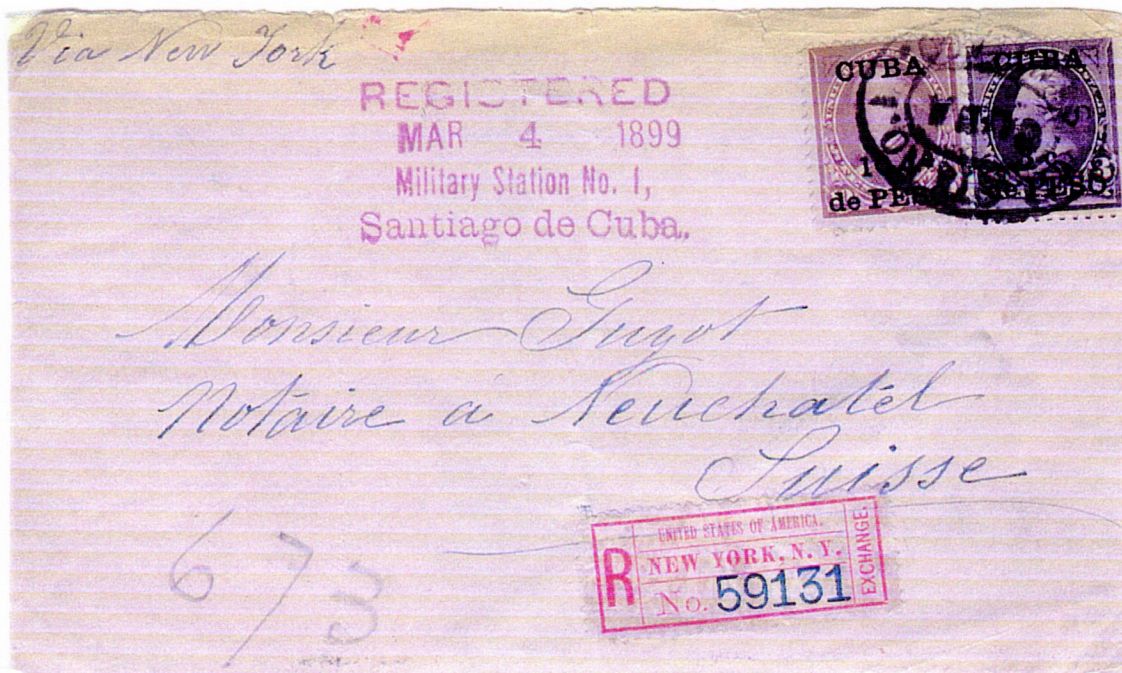 Via New York
REGISTERED
MAR 4 1899
Military Station No. 1,
Santiago de Cuba.
CUBA
de PE
CUBA
de PESO
Monsieur Guyot
Notaire à Neuchatel
Suisse
R
UNITED STATES OF AMERICA.
NEW YORK, N. Y.
No. 59131
EXCHANGE.
6 7 3